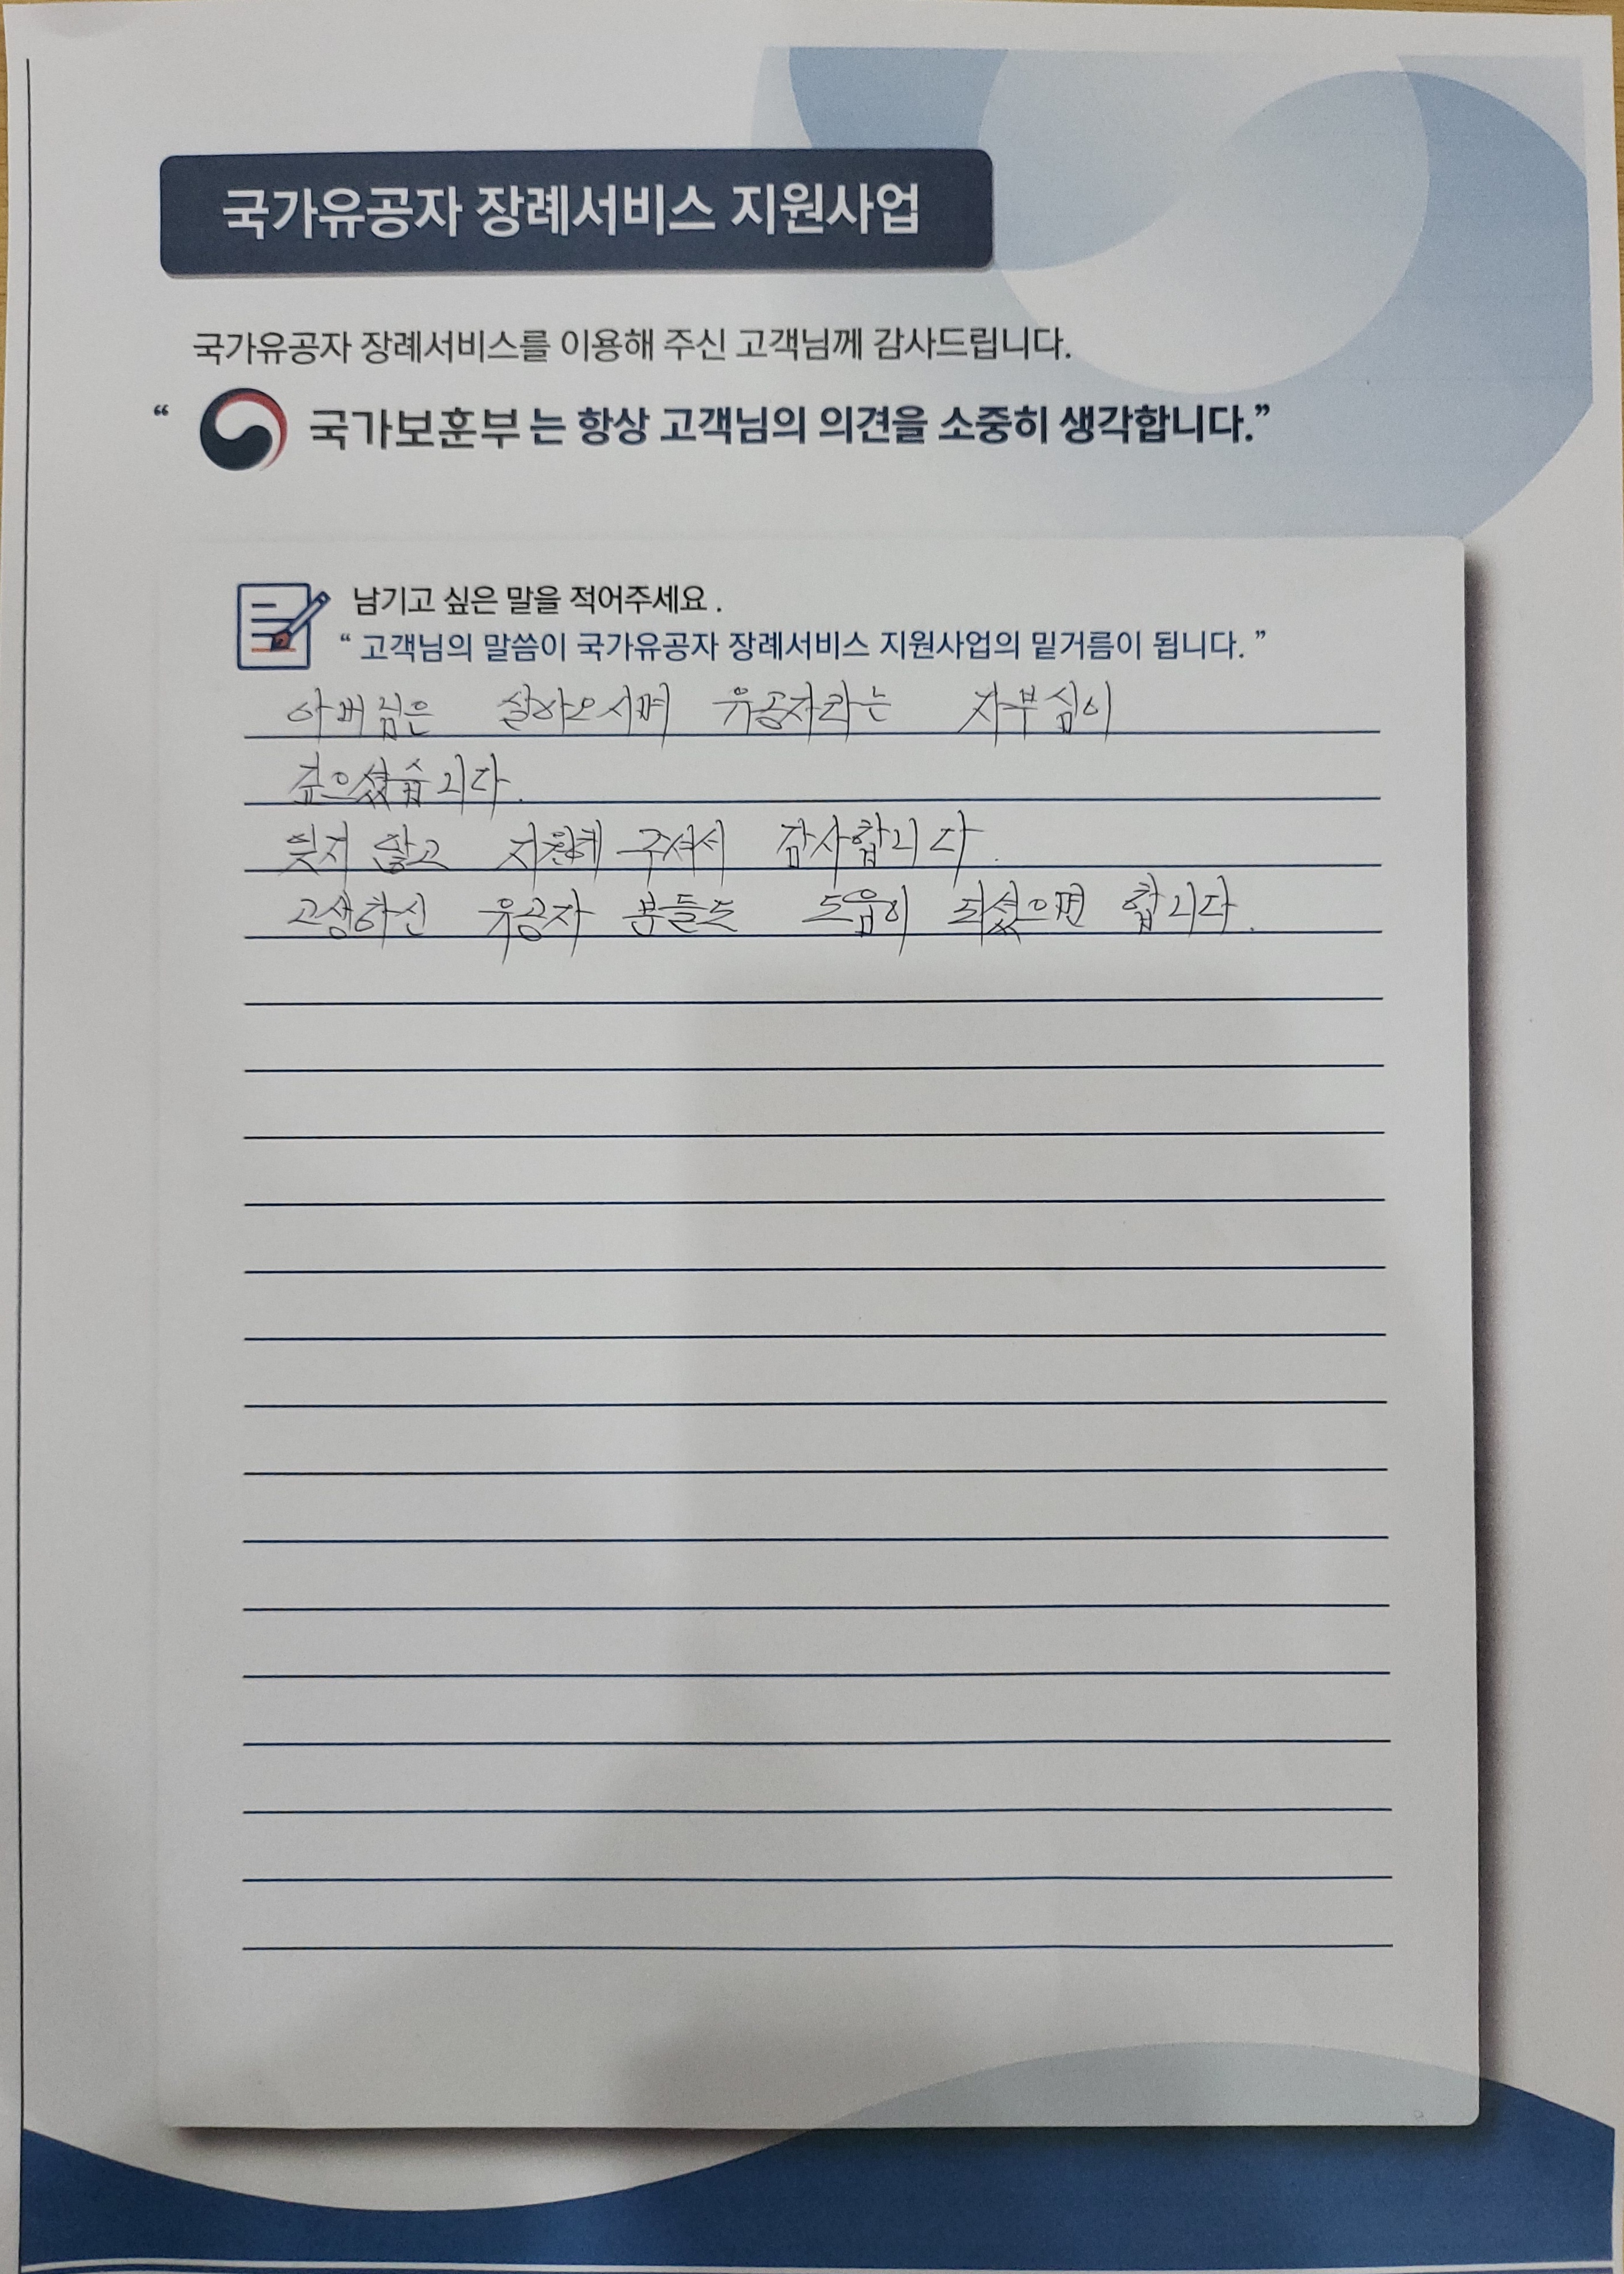 국가유공자 장례서비스 지원사업
국가유공자 장례서비스를 이용해 주신 고객님께 감사드립니다.
“ 국가보훈부 는 항상 고객님의 의견을 소중히 생각합니다.”
남기고 싶은 말을 적어주세요 .
“ 고객님의 말씀이 국가유공자 장례서비스 지원사업의 밑거름이 됩니다. ”
아버님은 살아오시며 유공자라는 자부심이
깊으셨습니다.
잊지 않고 지원해 주셔서 감사합니다.
고생하신 유공자 분들도 도움이 되셨으면 합니다.